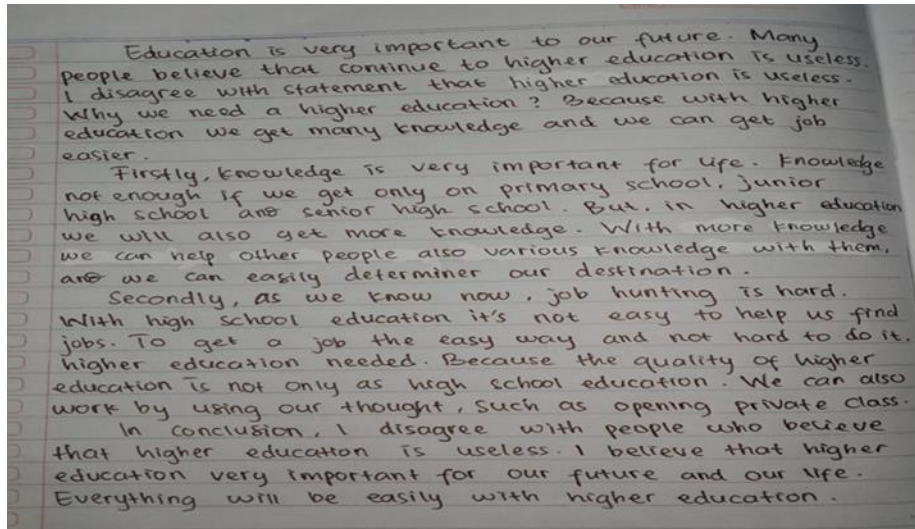 Education is very important to our future. Many
people believe that continue to higher education is useless.
I disagree with statement that higher education is useless.
Why we need a higher education? Because with higher
education we get many knowledge and we can get job
easier.
Firstly, knowledge is very important for life. Knowledge
not enough if we get only on primary school, junior
high school and senior high school. But, in higher education
we will also get more knowledge. With more knowledge
we can help other people also various knowledge with them,
and we can easily determiner our destination.
Secondly, as we know now, job hunting is hard.
With high school education it's not easy to help us find
jobs. To get a job the easy way and not hard to do it.
higher education needed. Because the quality of higher
education is not only as high school education. We can also
work by using our thought, such as opening private class.
In conclusion, I disagree with people who believe
that higher education is useless. I believe that higher
education very important for our future and our life.
Everything will be easily with higher education.